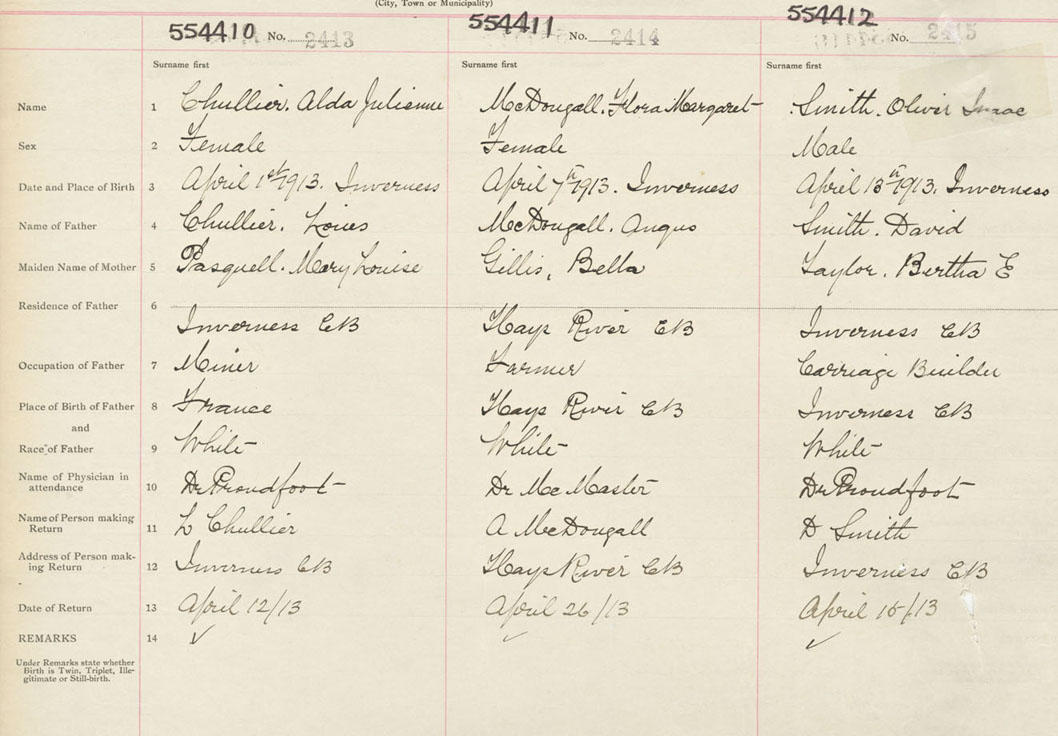 (City, Town or Municipality)
554410 No. 2413 554411 No. 2414 554412 No. 2415
Surname first Surname first Surname first
Name 1 Chullier. Alda Julienne McDougall. Flora Margaret Smith. Oliver Isaac
Sex 2 Female Female Male
Date and Place of Birth 3 April 1st 1913. Inverness April 7th 1913. Inverness April 13th 1913. Inverness
Name of Father 4 Chullier. Louis McDougall. Angus Smith. David
Maiden Name of Mother 5 Pasquell. Mary Louise Gillis, Bella Taylor. Bertha E
Residence of Father 6
Inverness CB Hays River CB Inverness CB
Occupation of Father 7 Miner Farmer Carriage Builder
Place of Birth of Father 8 France Hays River CB Inverness CB
and
Race of Father 9 White White White
Name of Physician in
attendance 10 Dr Proudfoot Dr McMaster Dr Proudfoot
Name of Person making
Return 11 L Chullier A McDougall D Smith
Address of Person mak-
ing Return 12 Inverness CB Hays River CB Inverness CB
Date of Return 13 April 12/13 April 26/13 April 15/13
REMARKS 14 ✓ ✓ ✓
Under Remarks state whether
Birth is Twin, Triplet, Ille-
gitimate or Still-birth.